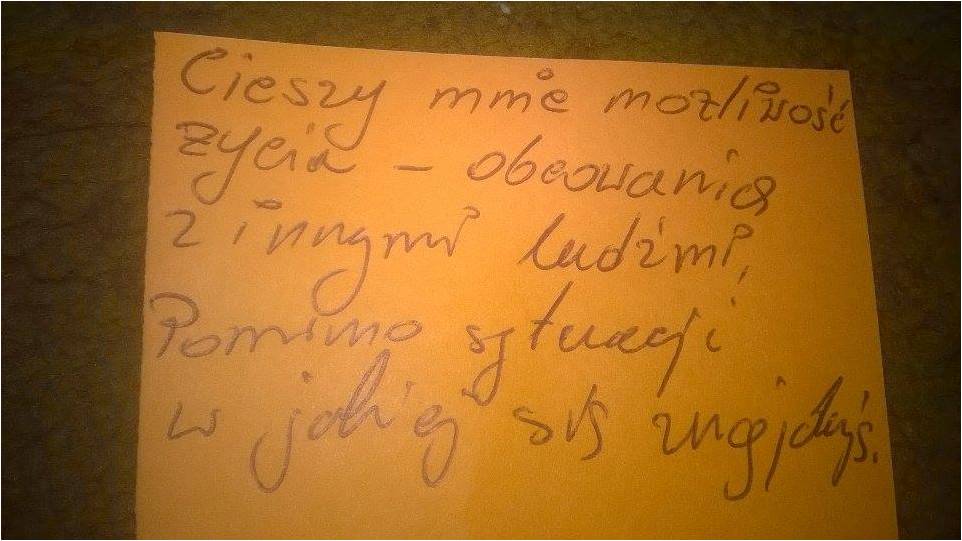 Cieszy mnie możliwość
życia – obcowania
z innymi ludźmi,
Pomimo sytuacji
w jakiej się znajduję.